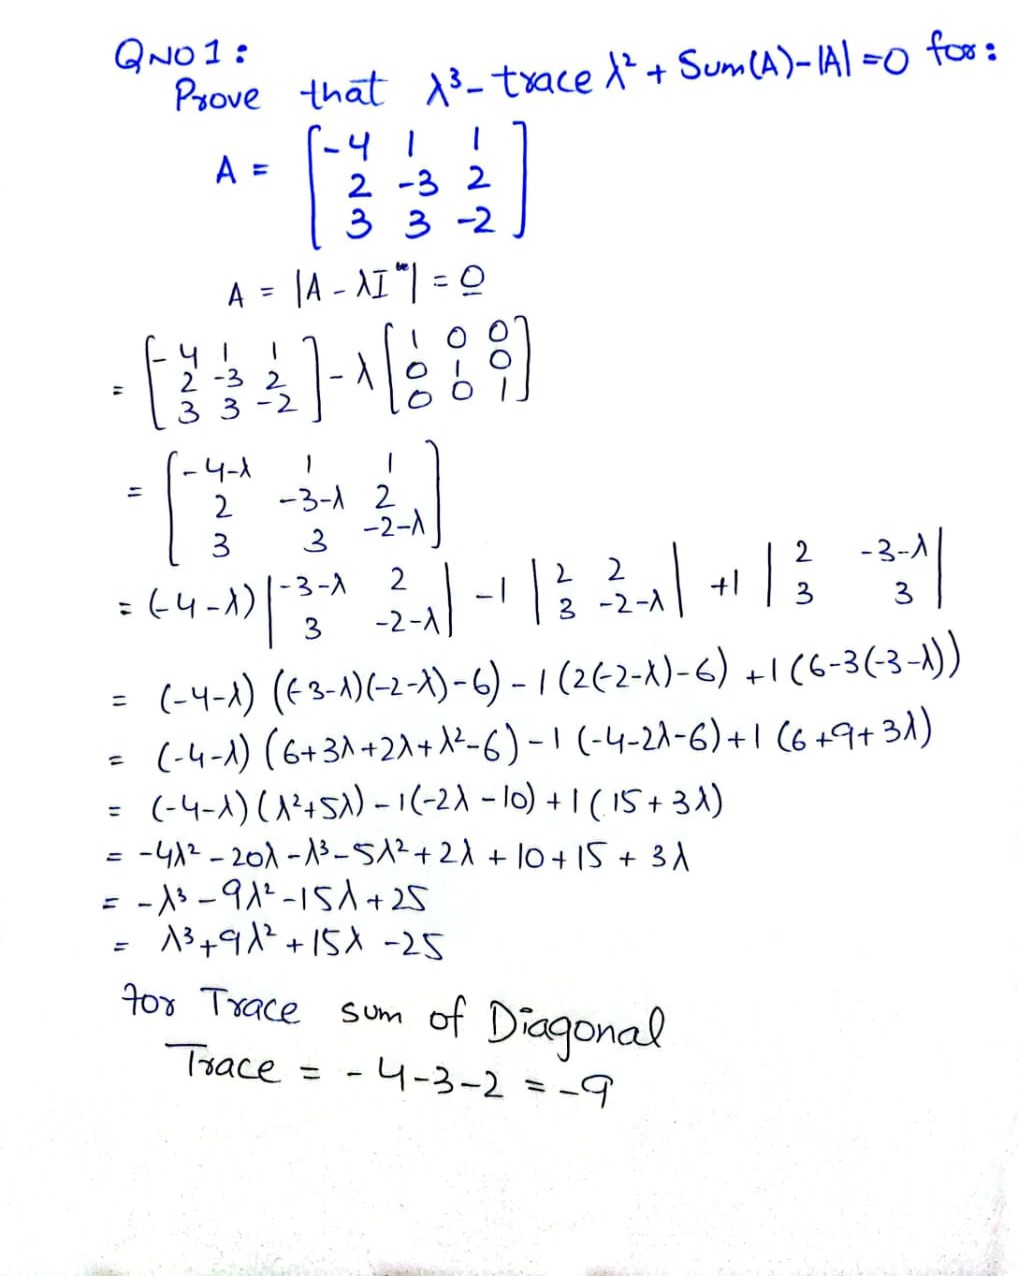 QNO1:
Prove that λ³-trace λ² + Sum(A)-|A| =0 for:
A = [-4 1 1
2 -3 2
3 3 -2]
A = |A-λI| = 0
= [-4 1 1
2 -3 2
3 3 -2] -λ [1 0 0
0 1 0
0 0 1]
= [-4-λ 1 1
2 -3-λ 2
3 3 -2-λ]
= (-4-λ) |-3-λ 2
3 -2-λ| -1 |2 2
3 -2-λ| +1 |2 -3-λ
3 3|
= (-4-λ) ((-3-λ)(-2-λ)-6) -1(2(-2-λ)-6) +1(6-3(-3-λ))
= (-4-λ) (6+3λ+2λ+λ²-6) -1(-4-2λ-6)+1(6+9+3λ)
= (-4-λ)(λ²+5λ) -1(-2λ-10) +1(15+3λ)
= -4λ² -20λ -λ³ -5λ² +2λ +10+15 +3λ
= -λ³ -9λ² -15λ +25
= λ³+9λ² +15λ -25
for Trace sum of Diagonal
Trace = -4-3-2 = -9